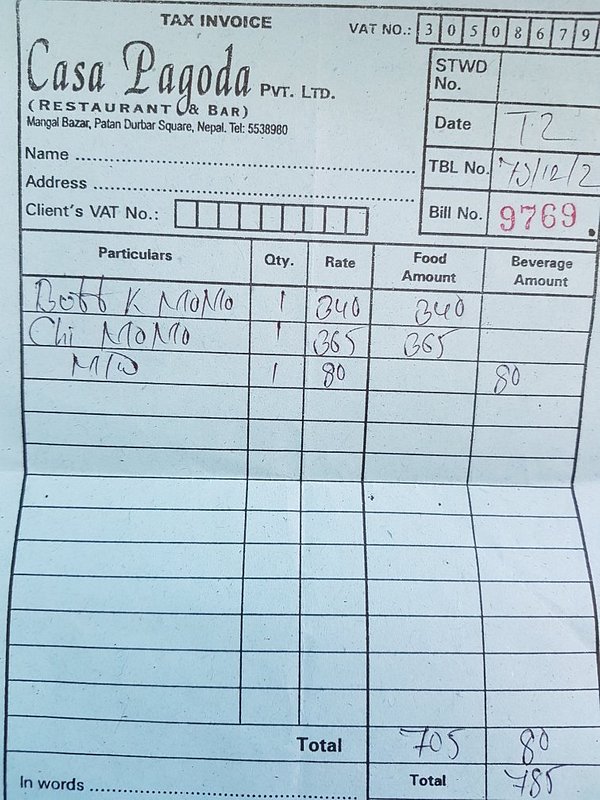 TAX INVOICE
VAT NO.: 3 0 5 0 8 6 7 9
Casa Pagoda PVT. LTD.
(RESTAURANT & BAR)
Mangal Bazar, Patan Durbar Square, Nepal. Tel: 5538980
STWD No.
Date T.2
Name
TBL No.
Address
Client's VAT No.:
Bill No. 9769.
Particulars Qty. Rate Food Amount Beverage Amount
Buff K MOMO 1 340 340
Chi MOMO 1 365 365
M/W 1 80 80
Total 705 80
In words Total 785